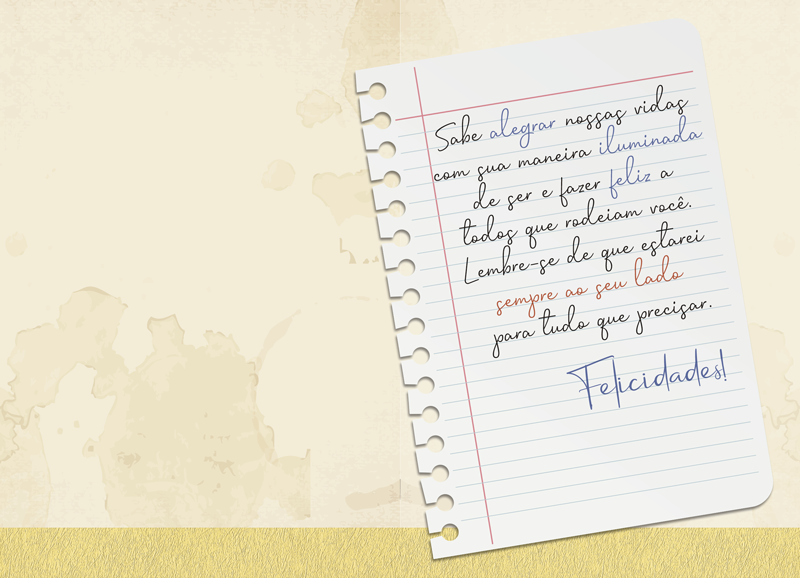 Sabe alegrar nossas vidas
com sua maneira iluminada
de ser e fazer feliz a
todos que rodeiam você.
Lembre-se de que estarei
sempre ao seu lado
para tudo que precisar.
Felicidades!